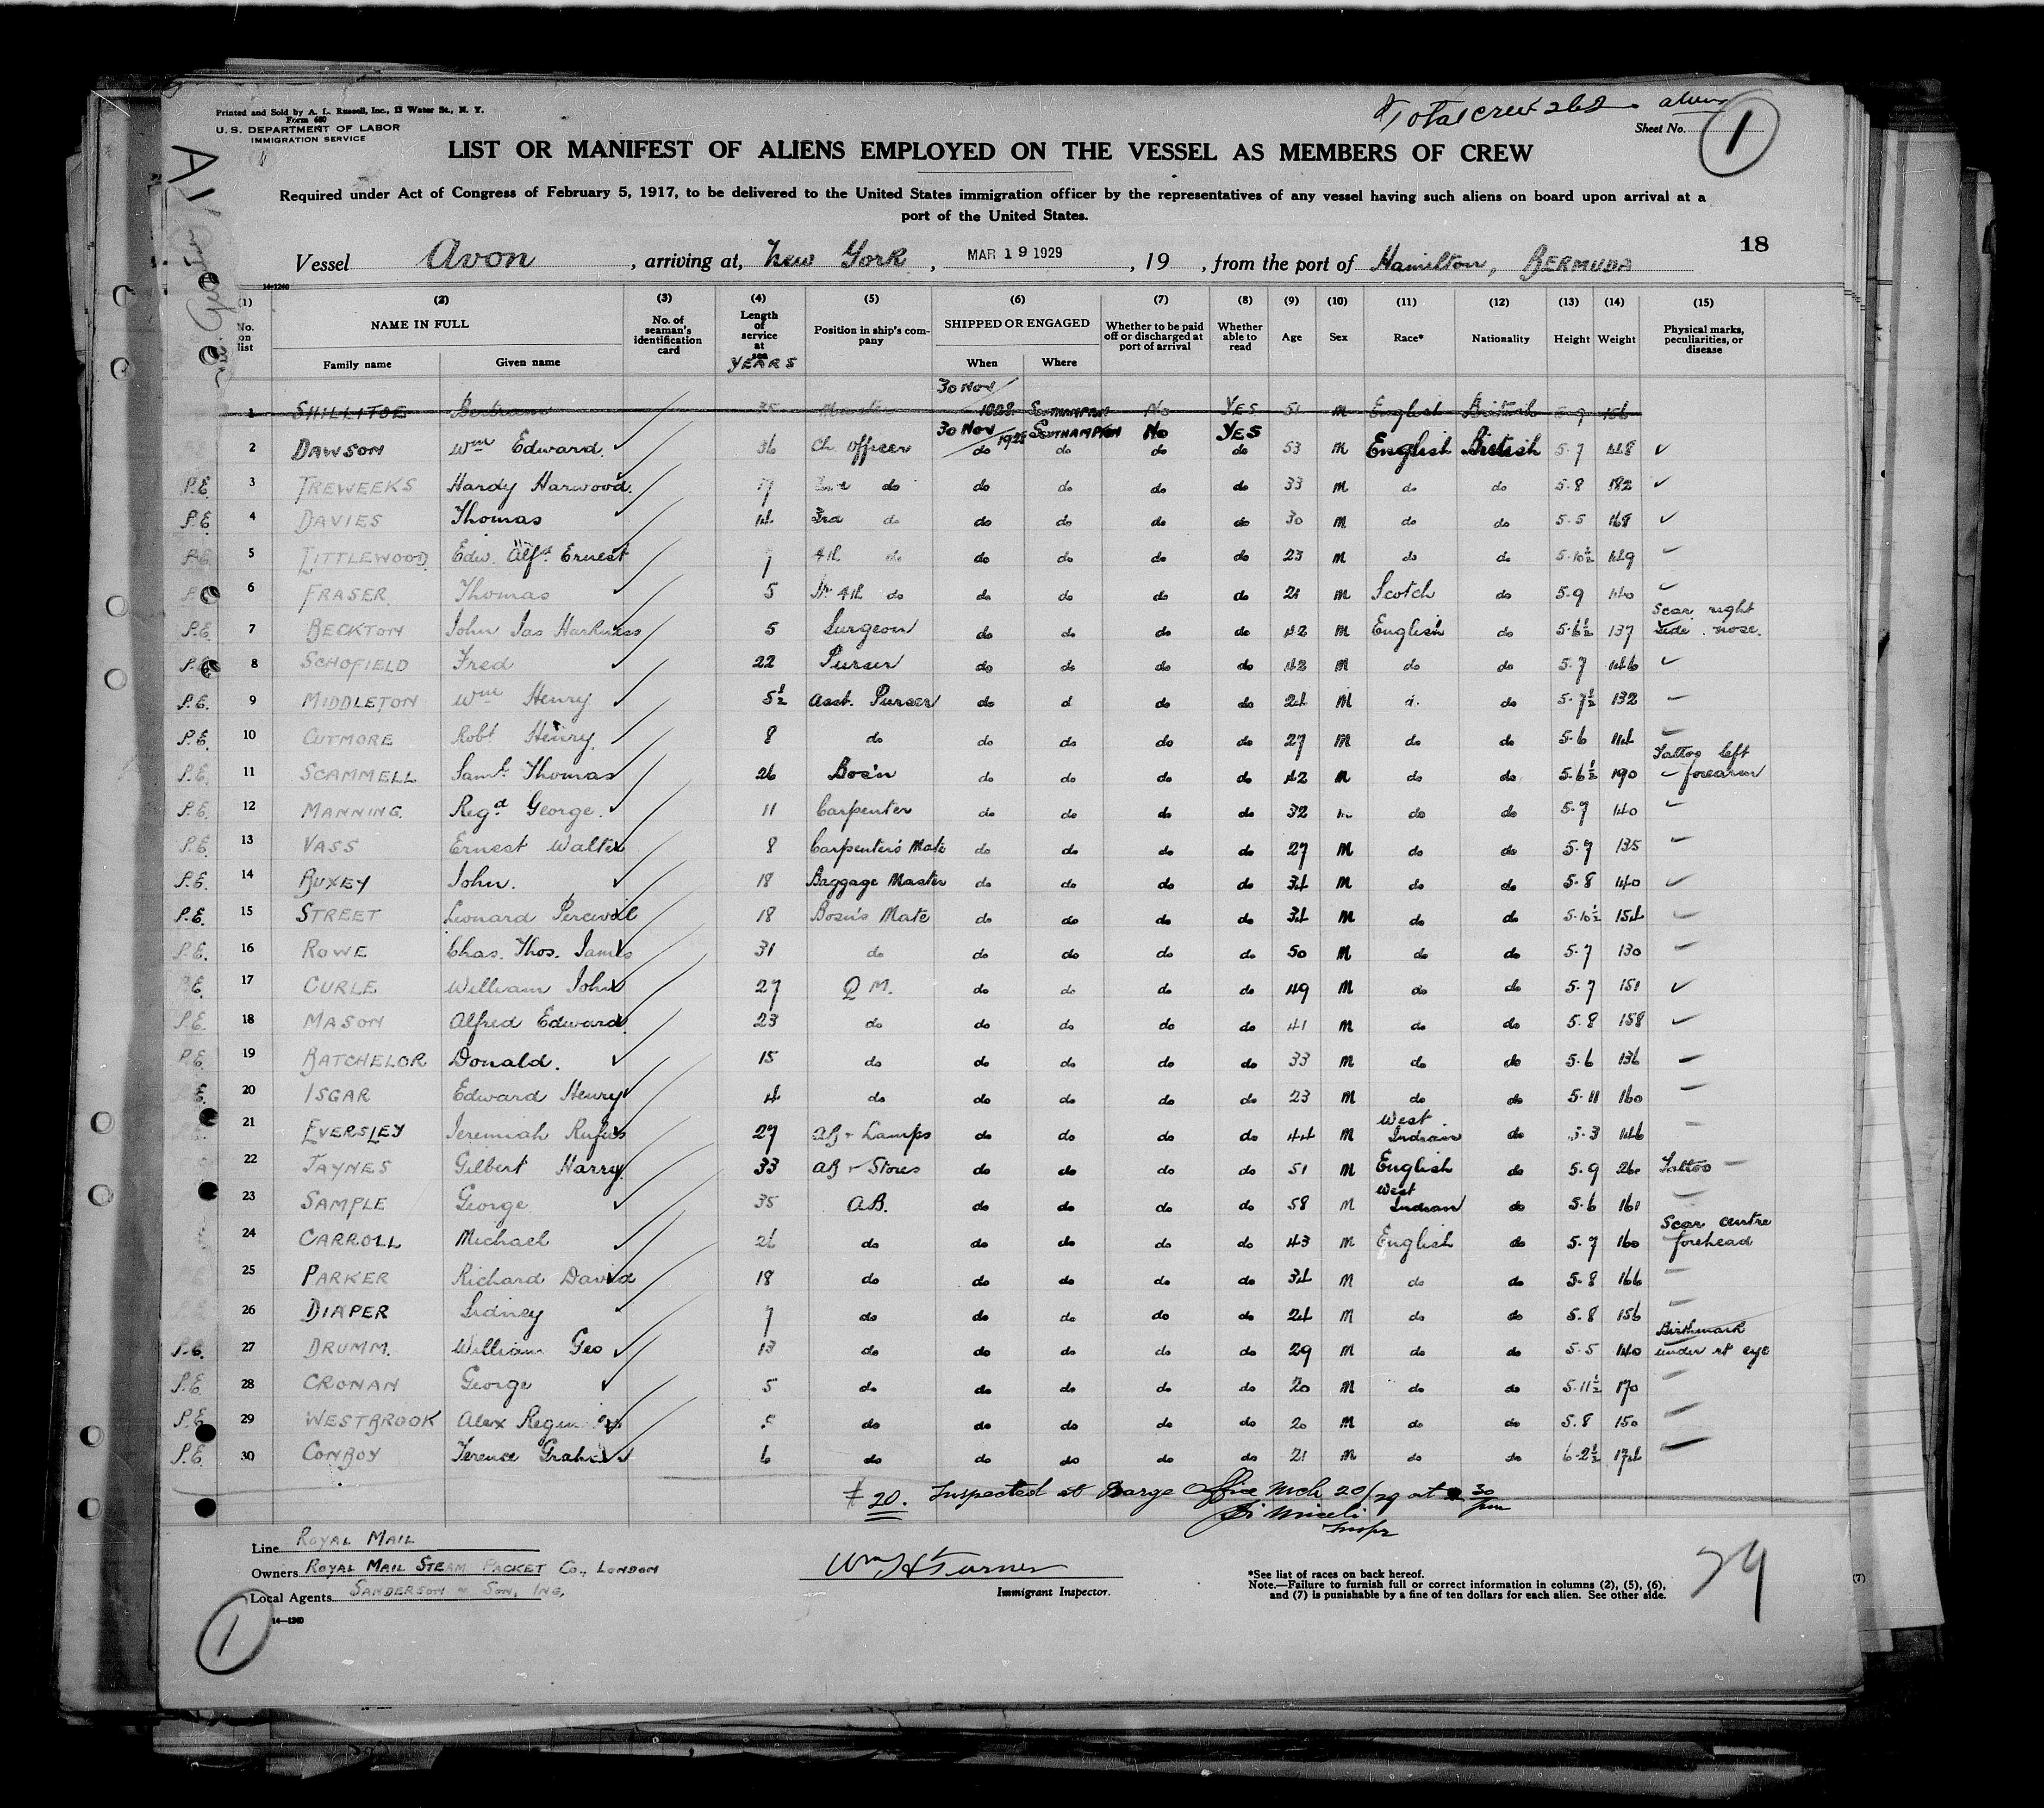 Printed and Sold by A. L. Russell, Inc., 13 Water St., N. Y.
Form 680
U. S. DEPARTMENT OF LABOR
IMMIGRATION SERVICE
Total crew 262 aliens
Sheet No. 1
LIST OR MANIFEST OF ALIENS EMPLOYED ON THE VESSEL AS MEMBERS OF CREW
Required under Act of Congress of February 5, 1917, to be delivered to the United States immigration officer by the representatives of any vessel having such aliens on board upon arrival at a
port of the United States.
18
Vessel Avon, arriving at, New York, MAR 19 1929, 19 , from the port of Hamilton, BERMUDA
14-1240
(1) (2) (3) (4) (5) (6) (7) (8) (9) (10) (11) (12) (13) (14) (15)
No. on list NAME IN FULL Family name Given name No. of seaman's identification card Length of service at sea YEARS Position in ship's company SHIPPED OR ENGAGED When Where Whether to be paid off or discharged at port of arrival Whether able to read Age Sex Race* Nationality Height Weight Physical marks, peculiarities, or disease
1 SHILLITOE Bertram 35 Master 30 Nov 1928 SOUTHAMPTON No YES 51 M English British 5-9 156
2 DAWSON Wm Edward. 36 Ch. Officer 30 Nov 1928 do SOUTHAMPTON do No do YES do 53 M English British 5-7 148
P.E. 3 TREWEEKS Hardy Harwood. 17 2nd do do do do do 33 M do do 5-8 182
P.E. 4 DAVIES Thomas 14 3rd do do do do do 30 M do do 5-5 168
P.E. 5 LITTLEWOOD Edw. Alfd. Ernest 7 4th do do do do do 23 M do do 5-10½ 149
6 FRASER. Thomas 5 Jr 4th do do do do do 21 M Scotch do 5-9 140
P.E. 7 BECKTON John Jas Harkness 5 Surgeon do do do do 42 M English do 5-6½ 137 Scar right side nose.
P.E. 8 SCHOFIELD Fred 22 Purser do do do do 42 M do do 5-7 146
P.E. 9 MIDDLETON Wm Henry 5½ Asst. Purser do d do do 24 M d. do 5-7½ 132
P.E. 10 CUTMORE Robt Henry. 8 do do do do do 27 M do do 5-6 114
P.E. 11 SCAMMELL Saml. Thomas 26 Bos'n do do do do 42 M do do 5-6½ 190 Tattoo left forearm
P.E. 12 MANNING. Regd George. 11 Carpenter do do do do 32 M do do 5-7 140
P.E. 13 VASS Ernest Walter 8 Carpenter's Mate do do do do 27 M do do 5-7 135
P.E. 14 BUXEY John. 18 Baggage Master do do do do 34 M do do 5-8 140
P.E. 15 STREET Leonard Percival 18 Bosn's Mate do do do do 34 M do do 5-10½ 154
P.E. 16 ROWE Chas. Thos. James 31 do do do do do 50 M do do 5-7 130
P.E. 17 CURLE William John 27 Q M. do do do do 49 M do do 5-7 151
P.E. 18 MASON Alfred Edward. 23 do do do do do 41 M do do 5-8 158
P.E. 19 BATCHELOR Donald. 15 do do do do do 33 M do do 5-6 136
E. 20 ISGAR Edward Henry 4 do do do do do 23 M do do 5-11 160
21 EVERSLEY Jeremiah Rufus 27 AB + Lamps do do do do 44 M West Indian do 5-3 146
22 JAYNES Gilbert Harry. 33 AB + Stores do do do do 51 M English do 5-9 Tattoo
23 SAMPLE George 35 A.B. do do do do 58 M West Indian do 5-6 161
24 CARROLL Michael 26 do do do do do 43 M English do 5-7 160 Scar centre forehead
25 PARKER Richard David 18 do do do do do 34 M do do 5-8 166
26 DIAPER Sidney 7 do do do do do 24 M do do 5-8 156
P.E. 27 DRUMM. William Geo 13 do do do do do 29 M do do 5-5 140 Birthmark under rt eye
P.E. 28 CRONAN George 5 do do do do do 20 M do do 5-11½ 170
P.E. 29 WESTBROOK Alex 5 do do do do do 20 M do do 5-8 150
P.E. 30 CONBOY Terence 6 do do do do do 21 M do do 6-2½ 174
# 20. Inspected at Barge Office Mch 20/29 at 30 pm
Inspr
Line ROYAL MAIL
Owners ROYAL MAIL STEAM PACKET Co., LONDON
Local Agents SANDERSON & SON, INC,
14—1240
1
Wm H Turner
Immigrant Inspector.
*See list of races on back hereof.
Note.—Failure to furnish full or correct information in columns (2), (5), (6),
and (7) is punishable by a fine of ten dollars for each alien. See other side.
29
(7)